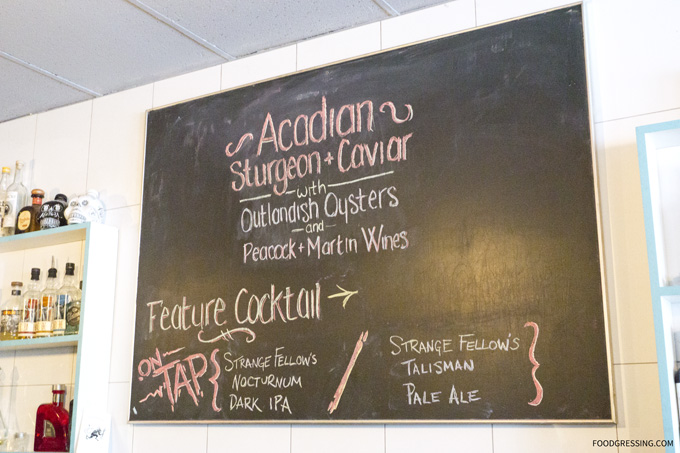 Acadian
Sturgeon + Caviar
with
Outlandish Oysters
and
Peacock + Martin Wines
Feature Cocktail →
ON TAP
STRANGE FELLOW'S
NOCTURNUM
DARK IPA
STRANGE FELLOW'S
TALISMAN
PALE ALE
FOODGRESSING.COM